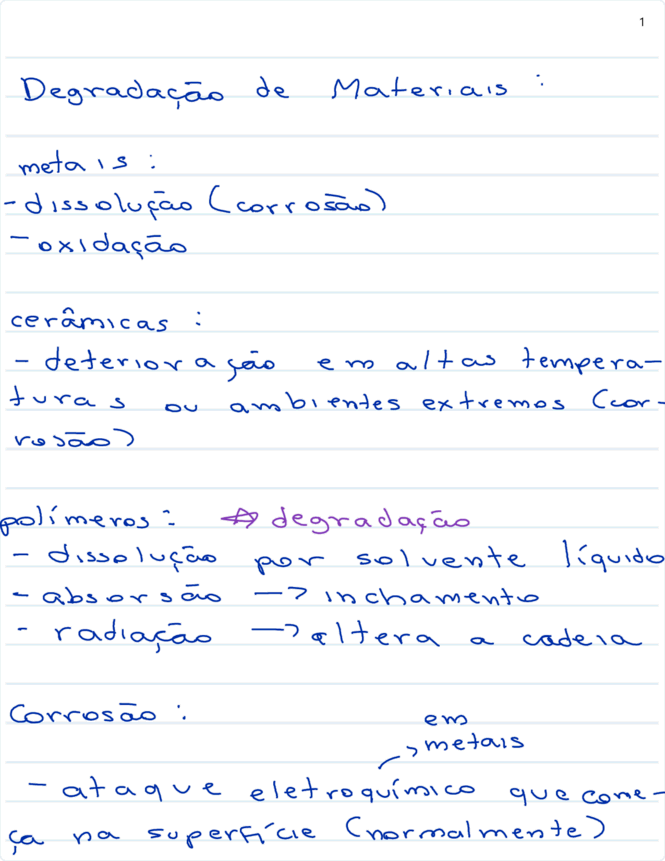 1
Degradação de Materiais :
metais :
- dissolução (corrosão)
- oxidação
cerâmicas :
- deterioração em altas tempera-
turas ou ambientes extremos (cor-
rosão)
polímeros : ☆ degradação
- dissolução por solvente líquido
- absorsão → inchamento
- radiação → altera a cadeia
Corrosão :
em
metais
- ataque eletroquímico que come-
ça na superfície (normalmente)